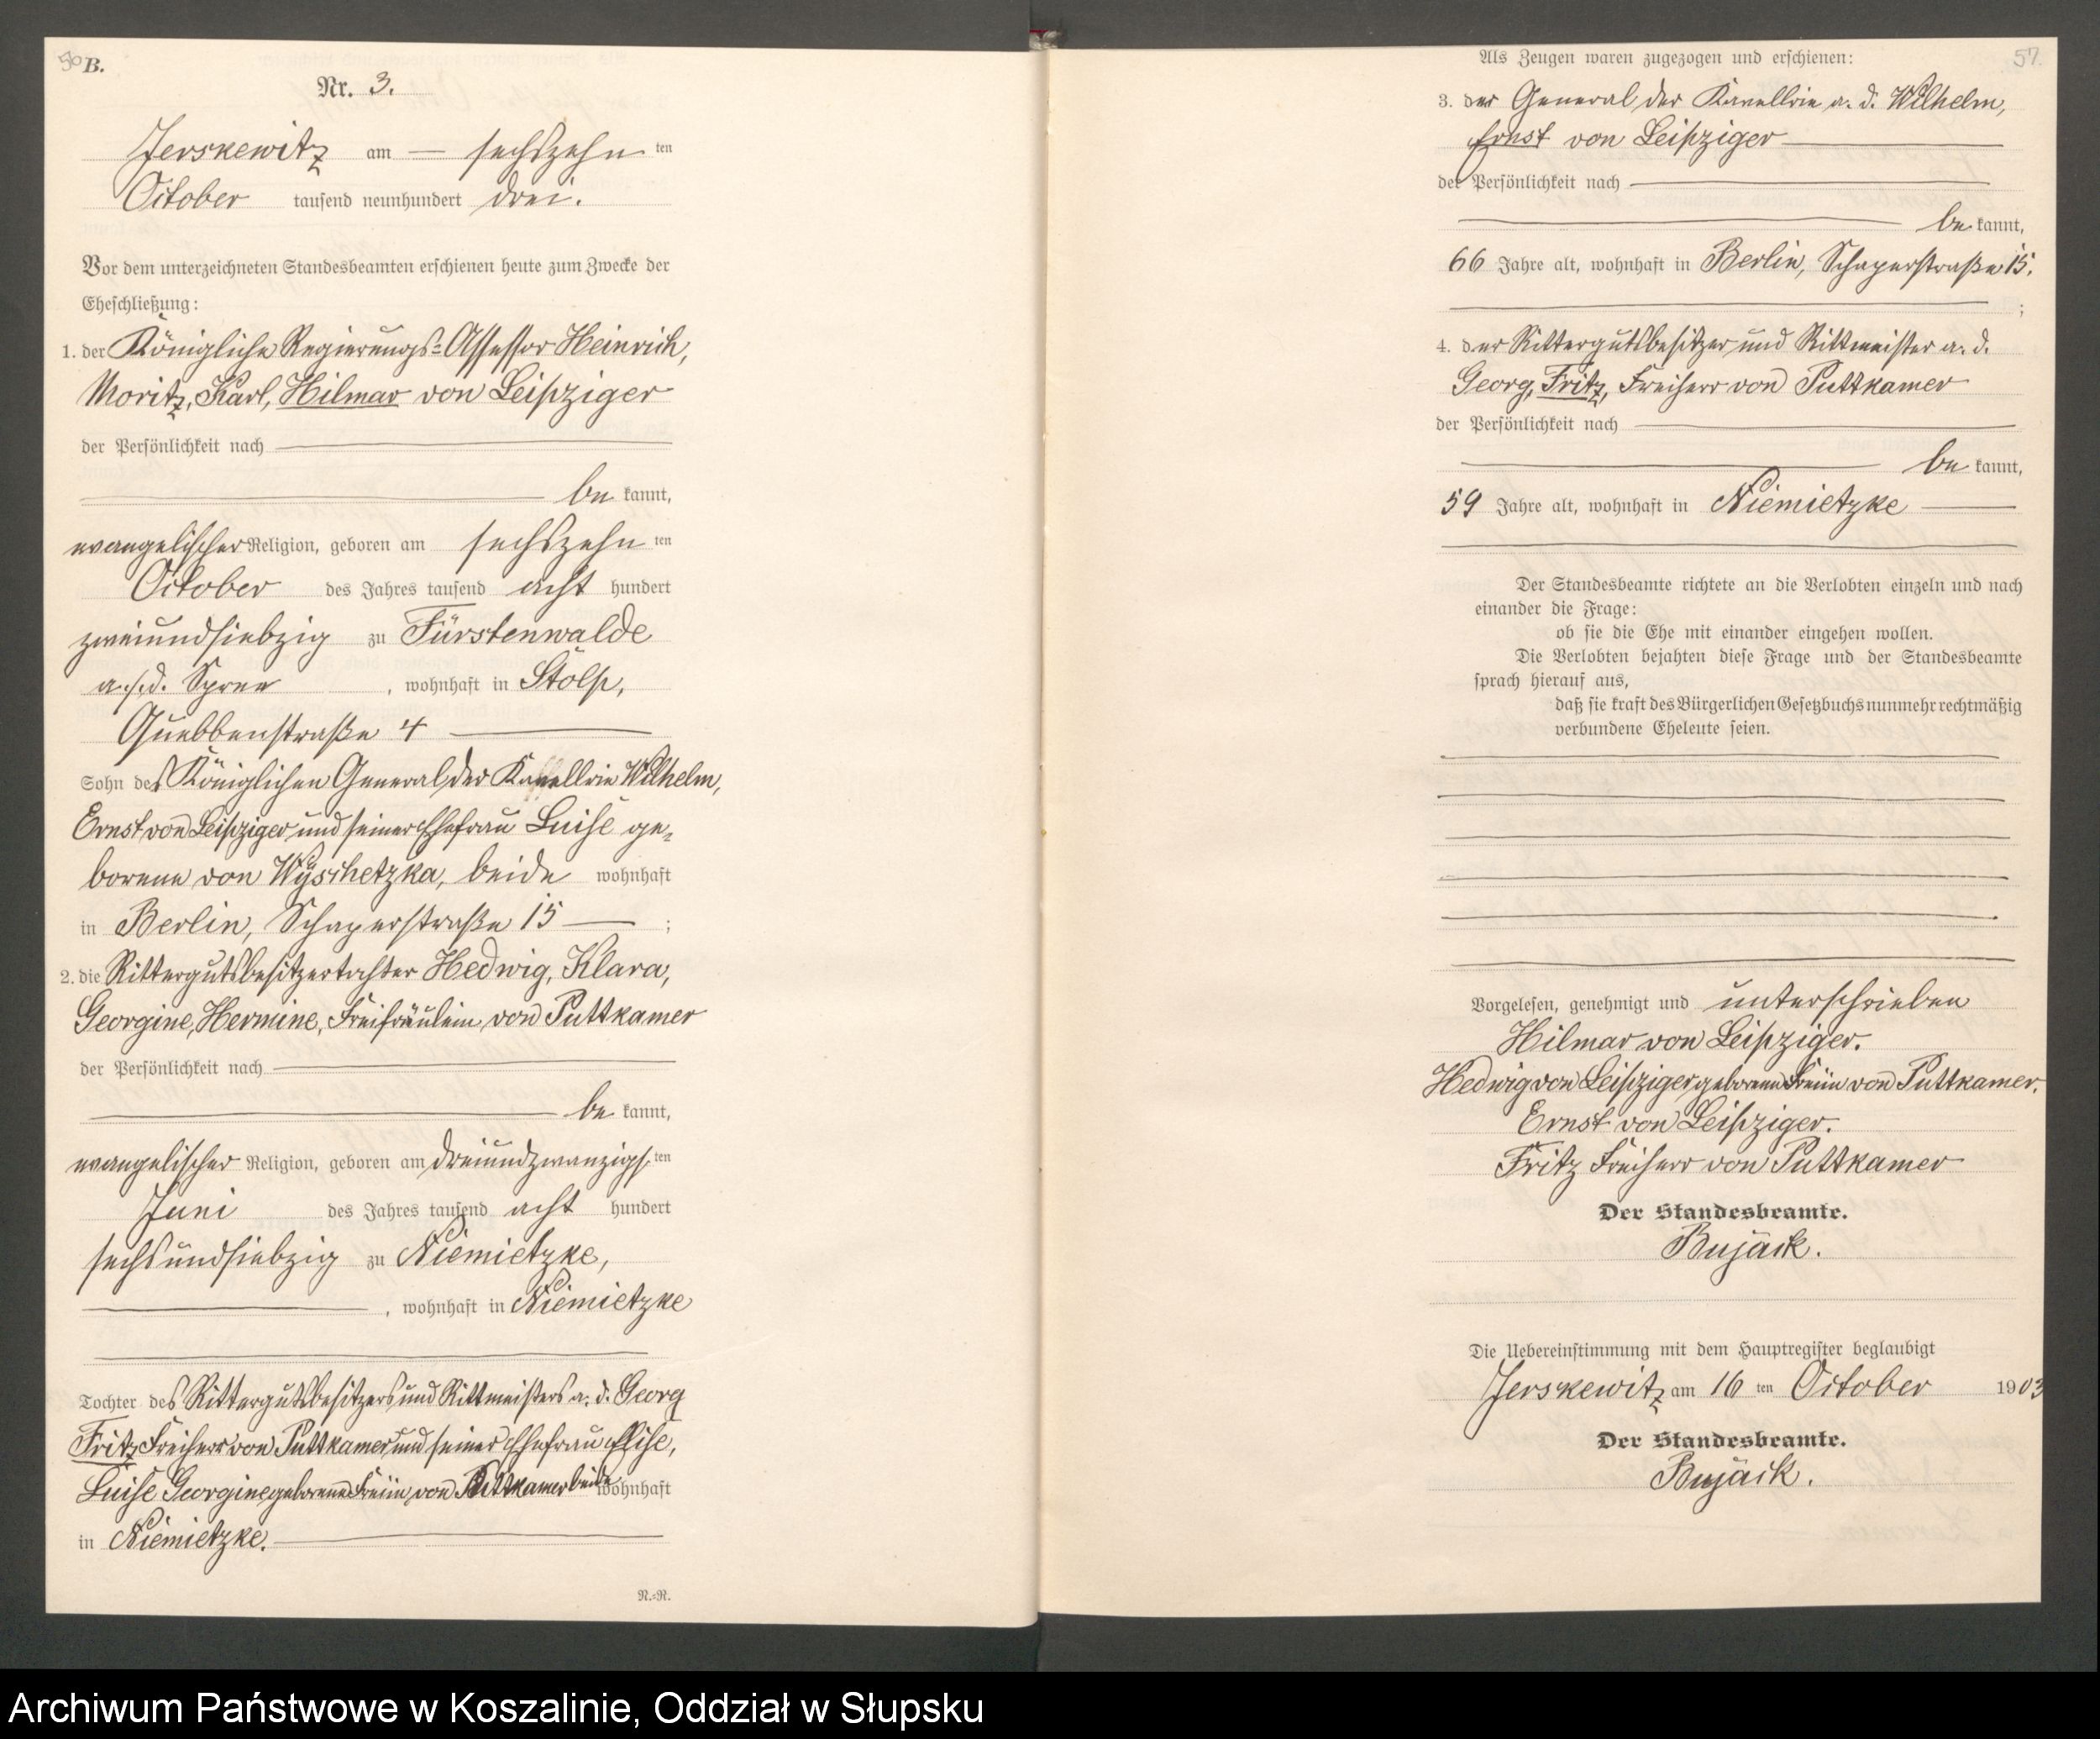 50
B.
Nr. 3.
Jerskewitz am — sechszehn ten
October tausend neunhundert drei.
Vor dem unterzeichneten Standesbeamten erschienen heute zum Zwecke der
Eheschließung:
1. der Königliche Regierungs-Assessor Heinrich,
Moritz, Karl, Hilmar von Leipziger
der Persönlichkeit nach
be kannt,
evangelischer Religion, geboren am sechszehn ten
October des Jahres tausend acht hundert
zweiundsiebzig zu Fürstenwalde
a./d. Spree , wohnhaft in Stolp,
Quebbenstraße 4
Sohn des Königlichen General der Kavellrie Wilhelm,
Ernst von Leipziger und seiner Ehefrau Luise ge-
borene von Wÿschetzka, beide wohnhaft
in Berlin, Schaperstraße 15 ;
2. die Rittergutsbesitzertochter Hedwig, Klara,
Georgine, Hermine, Freifräulein von Puttkamer
der Persönlichkeit nach
be kannt,
evangelischer Religion, geboren am dreiundzwanzigs ten
Juni des Jahres tausend acht hundert
sechsundsiebzig zu Niemietzke,
, wohnhaft in Niemietzke
Tochter des Rittergutsbesitzers und Rittmeisters a. d. Georg
Fritz Freiherr von Puttkamer und seiner Ehefrau Elise,
Luise Georgine geborene Freiin von Puttkamer beide wohnhaft
in Niemietzke.
N.=N.
57.
Als Zeugen waren zugezogen und erschienen:
3. der General der Kavellrie a. d. Wilhelm,
Ernst von Leipziger
der Persönlichkeit nach
be kannt,
66 Jahre alt, wohnhaft in Berlin, Schaperstraße 15.
;
4. der Rittergutsbesitzer und Rittmeister a. d.
Georg, Fritz, Freiherr von Puttkamer
der Persönlichkeit nach
be kannt,
59 Jahre alt, wohnhaft in Niemietzke
Der Standesbeamte richtete an die Verlobten einzeln und nach
einander die Frage:
ob sie die Ehe mit einander eingehen wollen.
Die Verlobten bejahten diese Frage und der Standesbeamte
sprach hierauf aus,
daß sie kraft des Bürgerlichen Gesetzbuchs nunmehr rechtmäßig
verbundene Eheleute seien.
Vorgelesen, genehmigt und unterschrieben
Hilmar von Leipziger.
Hedwig von Leipziger geborene Freiin von Puttkamer.
Ernst von Leipziger.
Fritz Freiherr von Puttkamer
Der Standesbeamte.
Bujack.
Die Uebereinstimmung mit dem Hauptregister beglaubigt
Jerskewitz am 16 ten October 1903
Der Standesbeamte.
Bujack.
Archiwum Państwowe w Koszalinie, Oddział w Słupsku